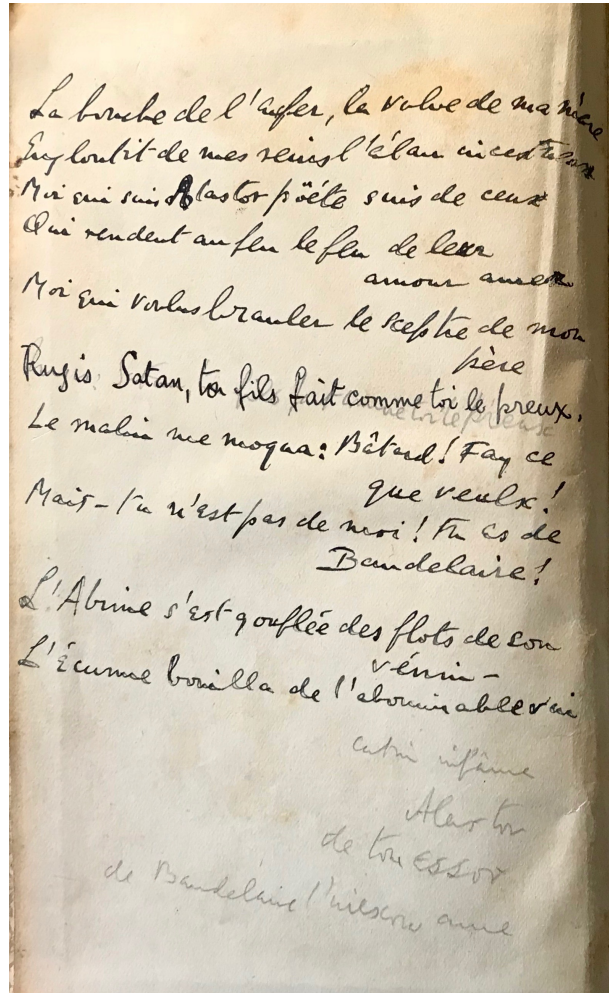 La bouche de l'enfer, la vulve de ma mère
Engloutit de mes reins l'élan incestueux
Moi qui suis Alastor pöéte suis de ceux
Qui rendent au feu le feu de leur
amour amer
Moi qui voulus branler le sceptre de mon
père
Rugis Satan, ton fils fait comme toi le preux.
Le malin me moqua : Bâtard ! Fay ce
que veulx !
Mais - tu n'est pas de moi ! Tu es de
Baudelaire !
L'Abime s'est gonflée des flots de son
vénin -
L'Écume bouilla de l'abominable vin
catin infâme
Alastor
de ton ESSOR
de Baudelaire l' ame